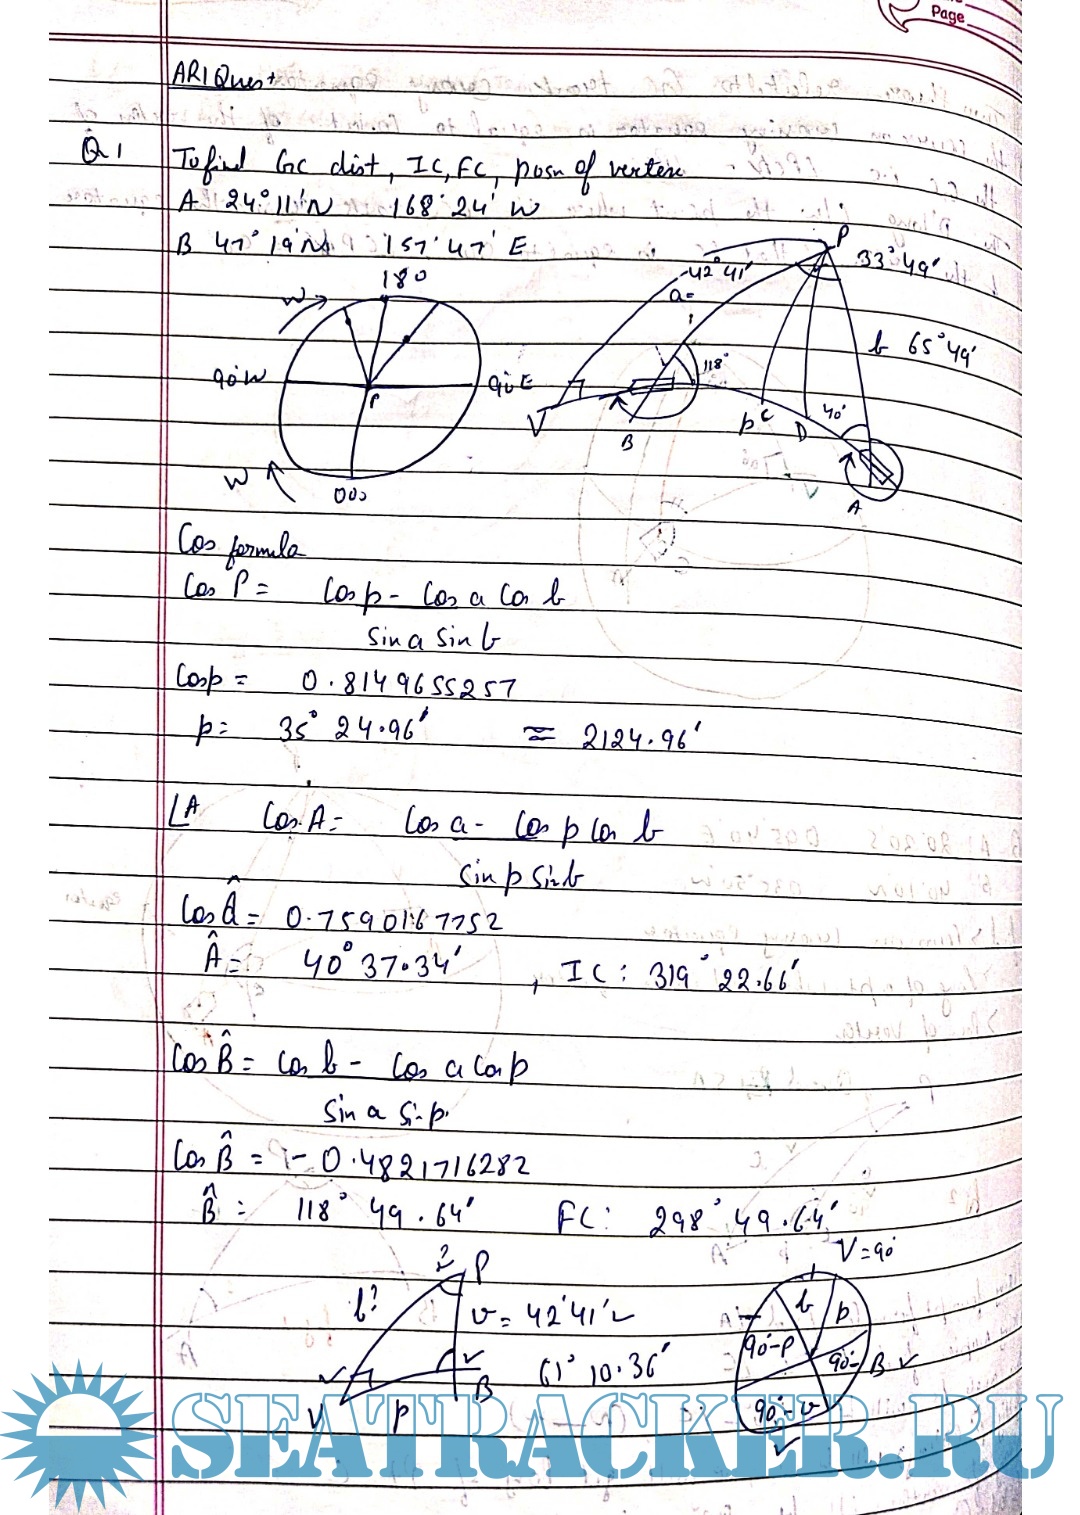 Page
ARI Quest
Q1 To find GC dist, IC, FC, posn of vertex
A 24° 11' N 168° 24' W
B 47° 19' N 157° 47' E
180
W
90°W
90°E
P
W
000
P
33° 49'
42° 41'
a=
b 65° 49'
118°
V
B
p
C
D
40°
A
Cos formula
Cos P = Cos p - Cos a Cos b
Sin a Sin b
Cos p = 0.8149655257
p = 35° 24.96' ≈ 2124.96'
∠A Cos A = Cos a - Cos p Cos b
Sin p Sin b
Cos Â = 0.7590167752
Â = 40° 37.34' , IC: 319° 22.66'
Cos B̂ = Cos b - Cos a Cos p
Sin a Sin p
Cos B̂ = - 0.4821716282
B̂ = 118° 49.64' FC: 298° 49.64'
V = 90°
? P
b?
v = 42° 41'
61° 10.36'
V
p
B
b
p
90-P
90-B
90-v
SEATRACKER.RU